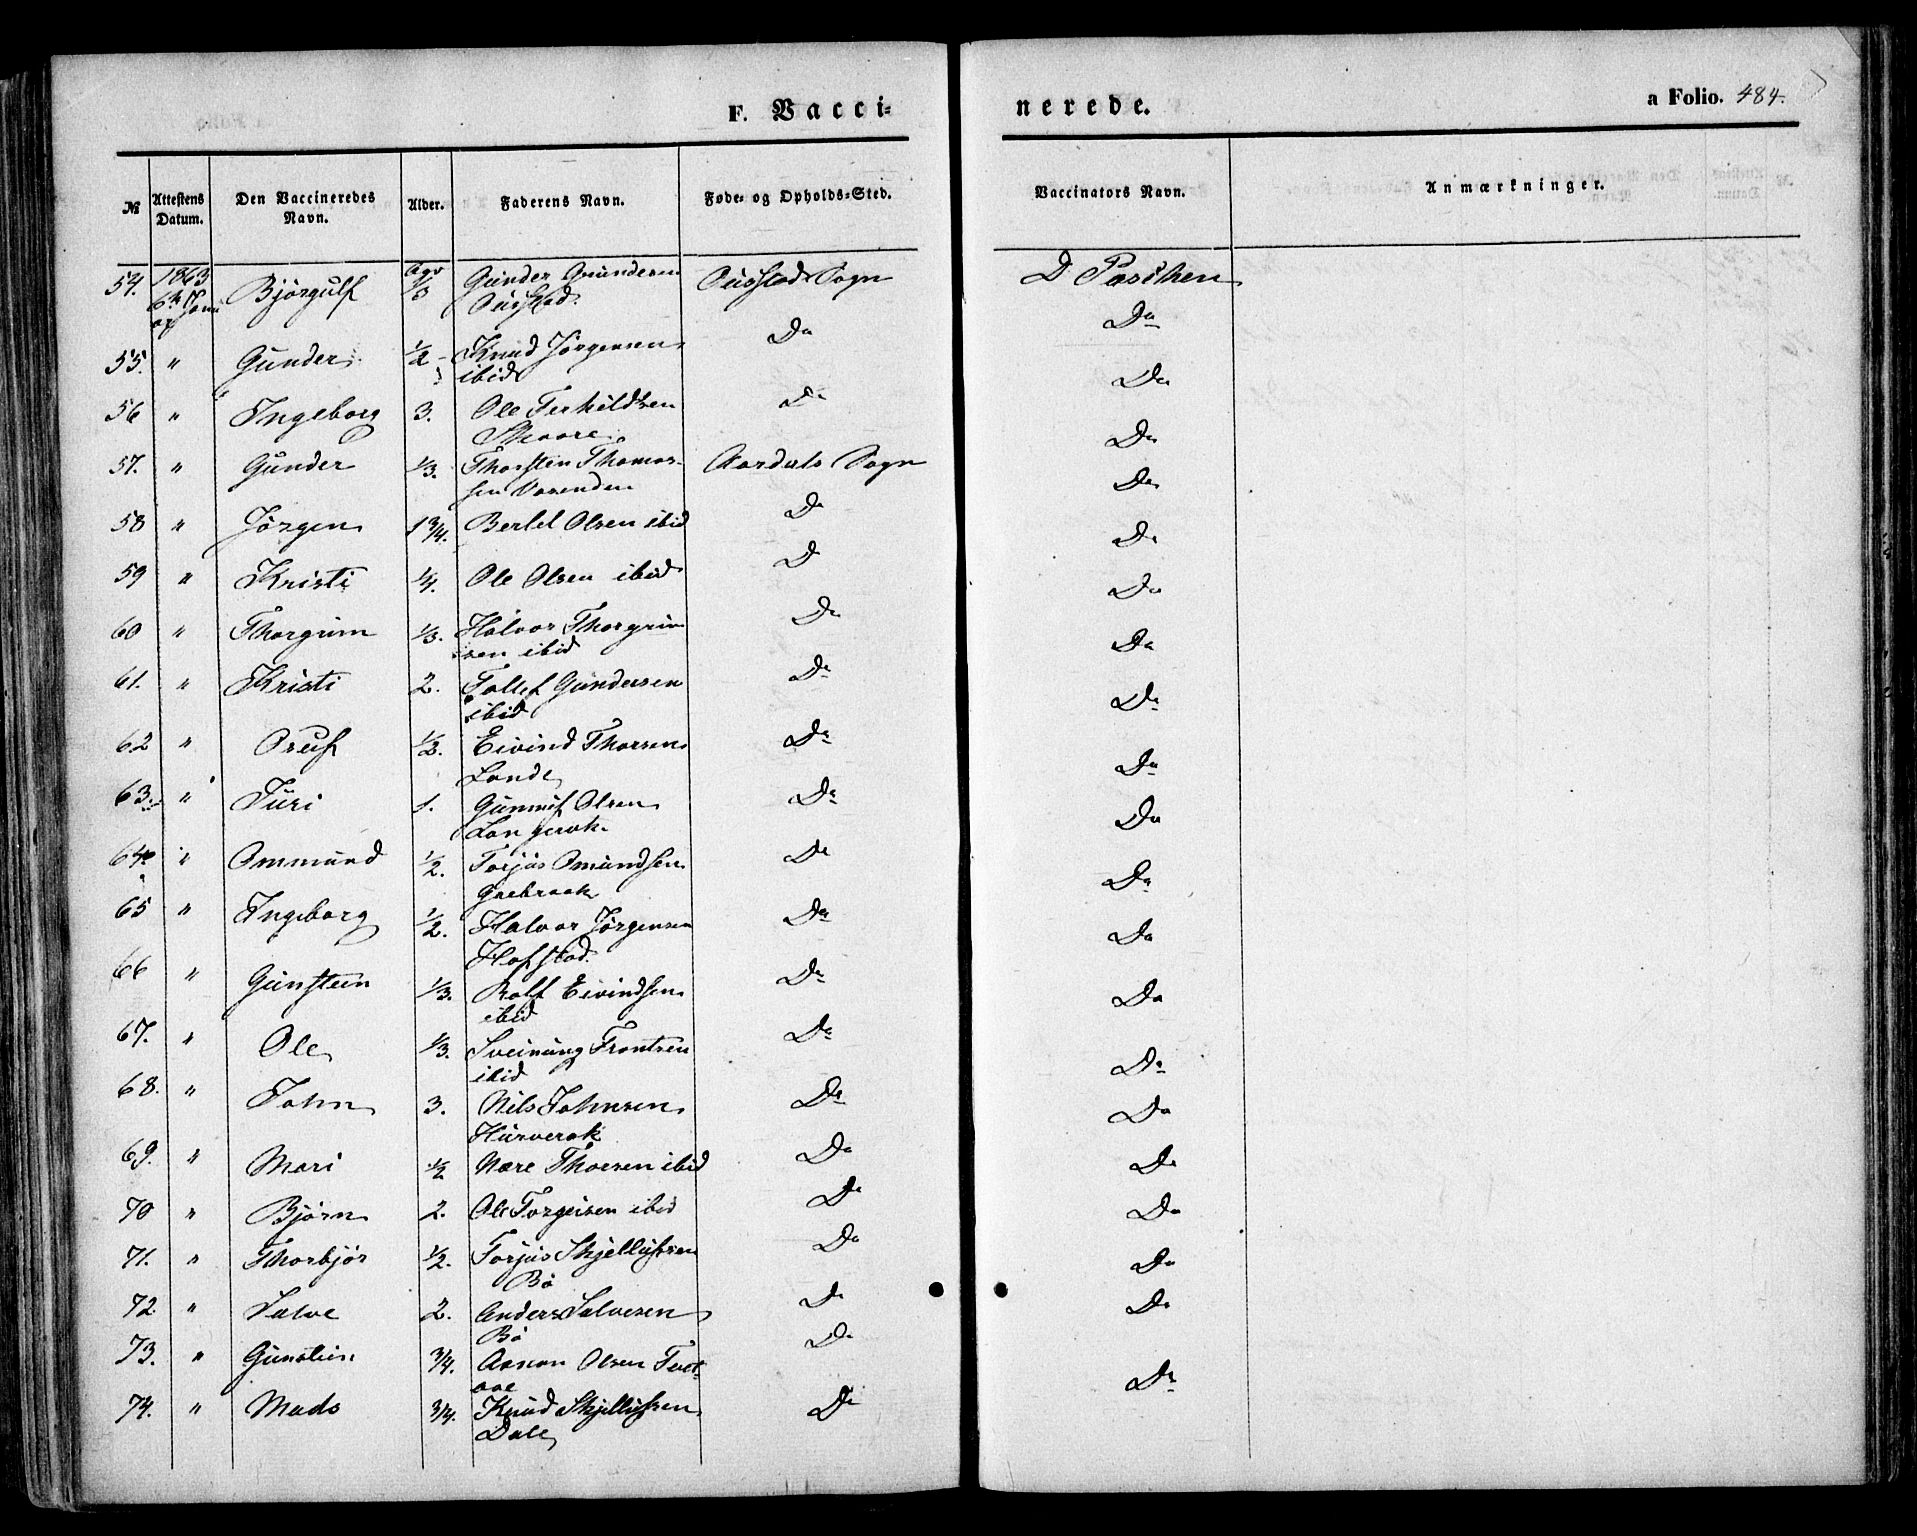 F. Vacci=nerede. a Folio. 484.
№ Attestens Datum. Den Vaccineredes Navn. Alder. Faderens Navn. Føde- og Opholds-Sted. Vaccinators Navn. Anmærkninger.
54. 1863 Bjørgulf 1/3 Gunder Gundersen Sogn D Paschen
55. " Gunder 1/2 Knud Jørgensen Do Do
ibid
56 " Ingeborg 3. Ole Terkildsen Do Do
57. " Gunder 1/3. Thorsten Thomas- Aardals Sogn Do
sen
58 " Jørgen 1 3/4. Bertel Olsen ibid Do Do
59 " Kristi 1/4. Ole Olsen ibid D Do
60 " Thorgrim 1/3. Halvor Thorgrim Do Do
sen ibid
61. " Kristi 2. Tollef Gundersen Do Do
ibid
62 " 1/2. Eivind Thorsen Do Do
Lande
63. " Turi 1. Gunnuf Olsen Do Do
Langerak
64. " Ommund 1/2. Torjus Omundsen Do Do
65 " Ingeborg 1/2. Halvor Jørgensen Do Do
Hofstad
66 " Gunstein 1/3. Rolf Eivindsen Do Do
ibid
67. " Ole 1/3. Sveinung Frontsen Do Do
ibid
68. " John 3. Nils Johnsen Do Do
Hurverak
69. " Mari 1/2 Nære Thorsen ibid Do Do
70 " Bjørn 2. Ole Torgeisen ibid Do Do
71. " Thorbjør 1/2. Torjus Skjellufsen Do Do
Bø
72. " Salve 2. Anders Salvesen Do Do
Bø
73. " Gunstein 3/4. Aanon Olsen Do
74. " Mads 3/4. Knud Skjellufsen Do Do
Dale